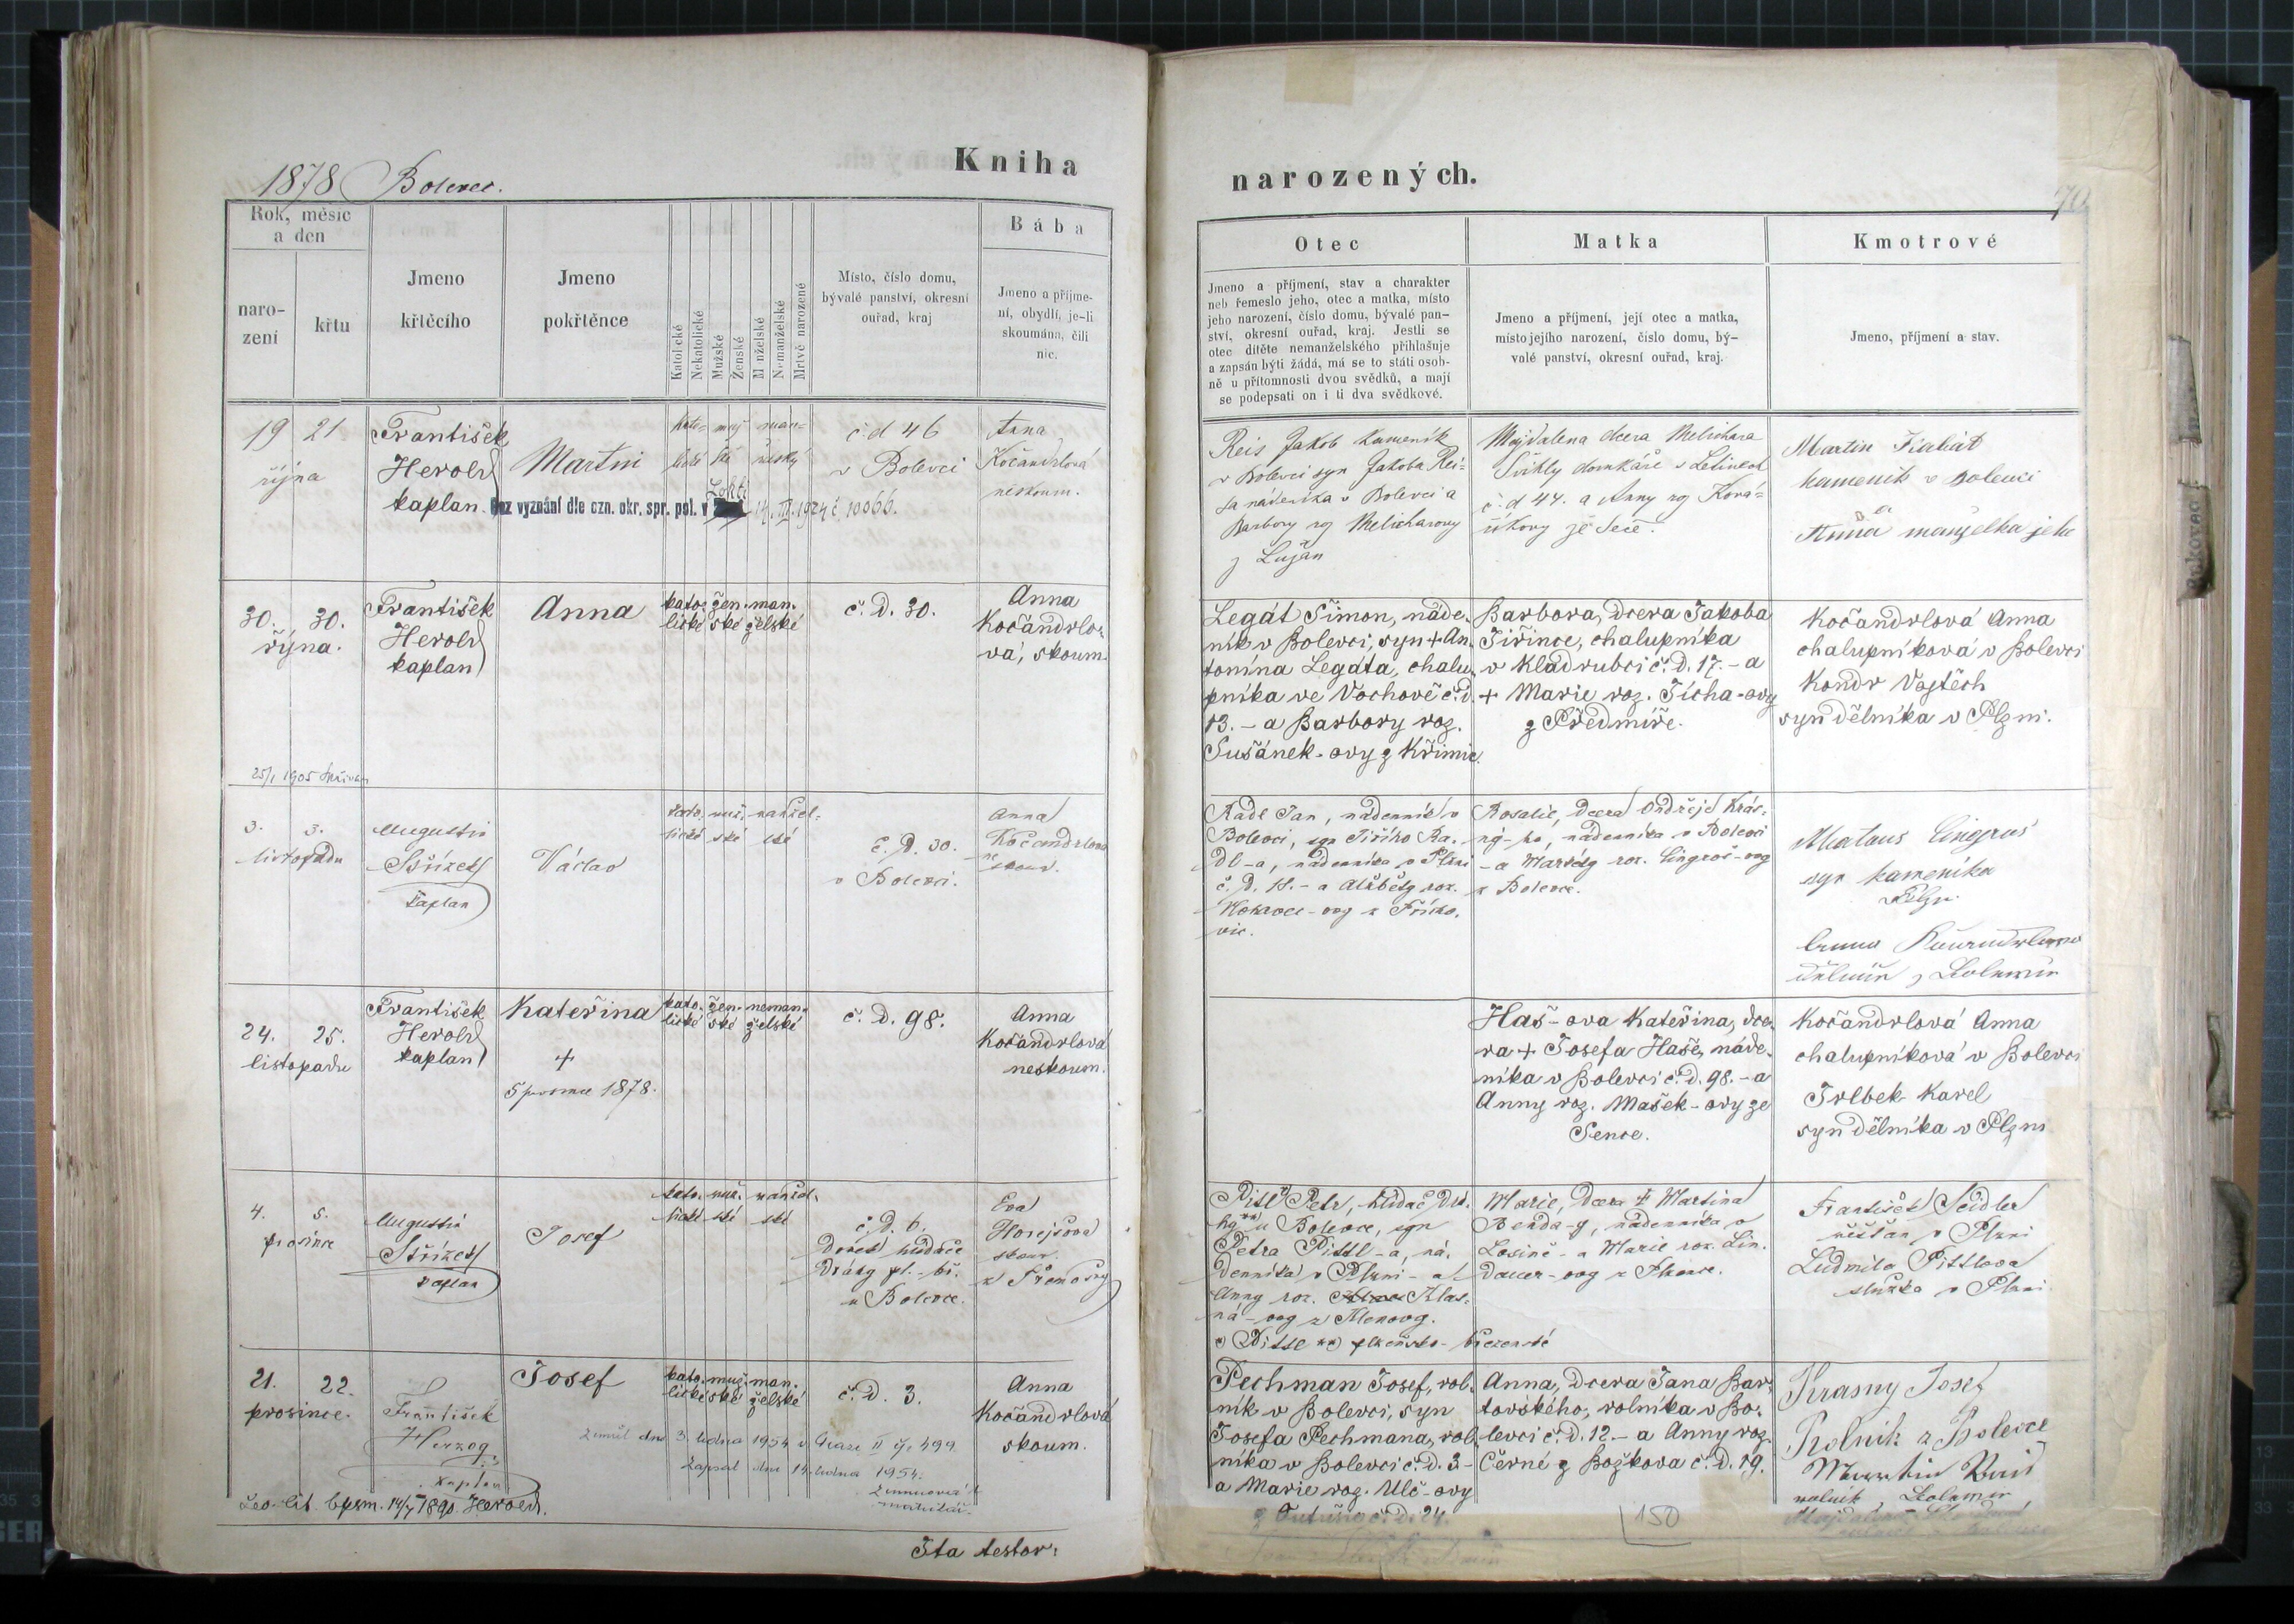 1878 Bolevec.
Kniha
narozených.
70
Rok, měsíc
a den
naro-
zení
křtu
Jmeno
křtěcího
Jmeno
pokřtěnce
Katolické
Nekatolické
Mužské
Ženské
Manželské
Nemanželské
Mrtvě narozené
Místo, číslo domu,
bývalé panství, okresní
ouřad, kraj
Bába
Jmeno a příjme-
ní, obydlí, je-li
skoumána, čili
nic.
Otec
Jmeno a příjmení, stav a charakter
neb řemeslo jeho, otec a matka, místo
jeho narození, číslo domu, bývalé pan-
ství, okresní ouřad, kraj. Jestli se
otec dítěte nemanželského přihlašuje
a zapsán býti žádá, má se to státi osob-
ně u přítomnosti dvou svědků, a mají
se podepsati on i ti dva svědkové.
Matka
Jmeno a příjmení, její otec a matka,
místo jejího narození, číslo domu, bý-
valé panství, okresní ouřad, kraj.
Kmotrové
Jmeno, příjmení a stav.
19 21
října
František
Herold
kaplan.
Martin
kato- muž man-
lické ské želský
Bez vyznání dle ozn. okr. spr. pol. v 14. III. 1924 č. 10066.
č. d 46
v Bolevci
Anna
Kočandrlová
neskoum.
Reis Jakob kameník
v Bolevci syn Jakoba Rei-
sa nádeníka v Bolevci a
Barbory roz Melicharovy
z Lužan
Majdalena dcera Melichara
Švihly domkáře v Letinech
č. d 44. a Anny roz Ková-
říkovy ze Seče.
Martin
kameník v Bolevci
Anna manželka jeho
30. 30.
října.
František
Herold
kaplan
Anna
kato. žen. man.
lické ské želské
č. d. 30.
Anna
Kočandrlo-
vá, skoum.
25/1 1905
Legát Šimon, náde-
ník v Bolevci, syn + An-
tonína Legáta, chalu-
pníka ve Vochově č. d.
13. - a Barbory roz.
Sušánek-ovy z Křimic.
Barbora, dcera Jakoba
Jiřince, chalupníka
v Kladrubci č. d. 17. - a
+ Marie roz. Tícha-ovy
z Předmíře.
Kočandrlová Anna
chalupníková v Bolevci
Kondr Vojtěch
syn dělníka v Plzni.
3. 3.
listopadu
Augustin
Střížek
kaplan
Václav
kato. muž. manžel-
lické ské ské
č. d. 30.
v Bolevci.
Anna
Kočandrlová
neskoum.
Radl Jan, nádenník v
Bolevci, syn Jiřího Ra-
dl-a, nádenníka v Plzni
č. d. 11. - a Alžběty roz.
Kokrocc-ovy z Příko-
vic.
Rosalie, dcera Ondřeje Krás-
ný-ho, nádenníka v Bolevci
- a Markéty roz. Cingroš-ovy
z Bolevce.
Mataus Cingroš
syn kameníka
Plzn
24. 25.
listopadu
František
Herold
kaplan
Kateřina
+
5 prosince 1878.
kato. žen. neman.
lické ské želské
č. d. 98.
Anna
Kočandrlová
neskoum.
Haš-ova Kateřina, dce-
ra + Josefa Haše, náde-
níka v Bolevci č. d. 98. - a
Anny roz. Mašek-ovy ze
Sence.
Kočandrlová Anna
chalupníková v Bolevci
Trlbek Karel
syn dělníka v Plzni
4. 5.
prosince
Augustin
Střížek
kaplan
Josef
kato. muž. manžel.
lické ské ské
č. d. 6.
Domek hlídače
dráhy pl.-bř.
u Bolevce.
Eva
Horejšová
skoum.
z Třemošny
Pitl Petr, hlídač drá-
hy u Bolevce, syn
Petra Pittl-a, ná-
denníka v Plzni - a
Anny roz. Klas-
ná-ovy z Klenovy.
*) Pittl **) plzeňsko-březenské
Marie, dcera + Martina
Benda-y, nádenníka v
Losině - a Marie roz. Lin-
dauer-ovy z Plzence.
František Seidler
měšťan v Plzni
Ludmila Pittlova
služka v Plzni.
21. 22.
prosince.
František
Herzog
kaplan
Josef
kato. muž. man.
lické ské želské
č. d. 3.
Anna
Kočandrlová
skoum.
Zemřel dne 3. ledna 1954 v Praze II čj. 499
Zapsal dne 14. ledna 1954.
Pechman Josef, rol-
ník v Bolevci, syn
Josefa Pechmana, rol-
níka v Bolevci č. d. 3. -
a Marie roz. Ulč-ovy
z Tutuše č. d. 24.
Anna, dcera Jana Bar-
tovského, rolníka v Bo-
levci č. d. 12. - a Anny roz.
Černé z Božkova č. d. 19.
Krasny Josef
Rolnik z Bolevce
Martin
rolník z
14/5 1890. Herold.
150
Ita testor: